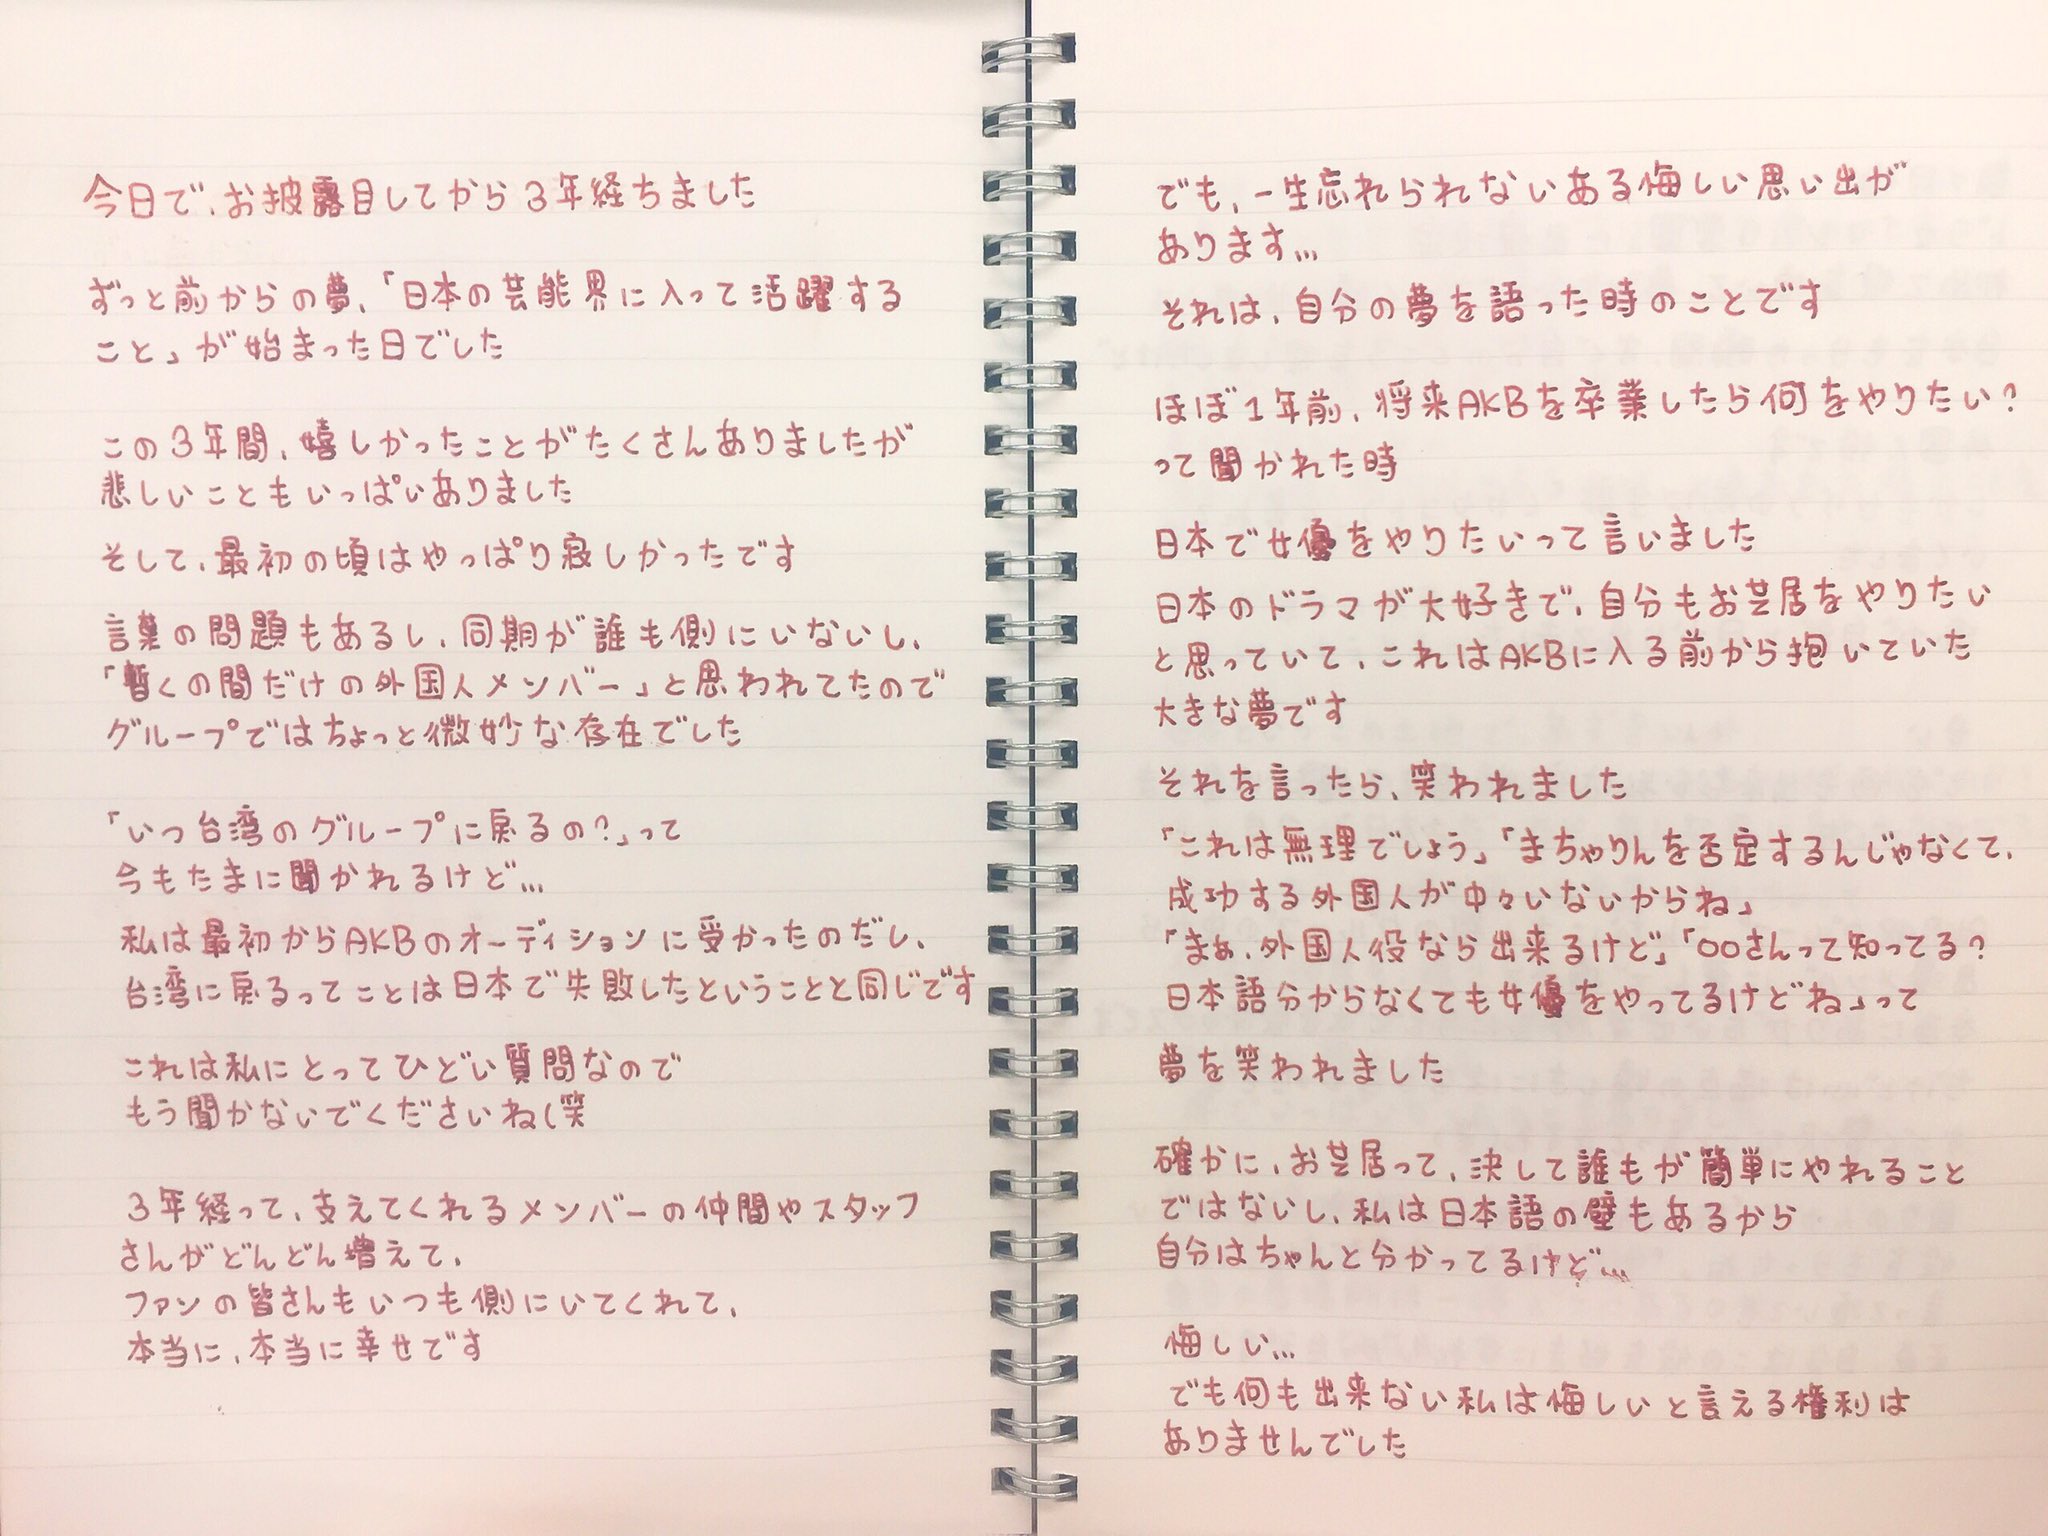 今日で、お披露目してから3年経ちました
ずっと前からの夢、「日本の芸能界に入って活躍する
こと」が始まった日でした
この3年間、嬉しかったことがたくさんありましたが
悲しいこともいっぱいありました
そして、最初の頃はやっぱり寂しかったです
言葉の問題もあるし、同期が誰も側にいないし、
「暫くの間だけの外国人メンバー」と思われてたので
グループではちょっと微妙な存在でした
「いつ台湾のグループに戻るの?」って
今もたまに聞かれるけど...
私は最初からAKBのオーディションに受かったのだし、
台湾に戻るってことは日本で失敗したということと同じです
これは私にとってひどい質問なので
もう聞かないでくださいね(笑
3年経って、支えてくれるメンバーの仲間やスタッフ
さんがどんどん増えて、
ファンの皆さんもいつも側にいてくれて、
本当に、本当に幸せです
でも、一生忘れられないある悔しい思い出が
あります...
それは、自分の夢を語った時のことです
ほぼ1年前、将来AKBを卒業したら何をやりたい?
って聞かれた時
日本で女優をやりたいって言いました
日本のドラマが大好きで、自分もお芝居をやりたい
と思っていて、これはAKBに入る前から抱いていた
大きな夢です
それを言ったら、笑われました
「これは無理でしょう」「まちゃりんを否定するんじゃなくて、
成功する外国人が中々いないからね」
「まぁ、外国人役なら出来るけど」「○○さんって知ってる?
日本語分からなくても女優をやってるけどね」って
夢を笑われました
確かに、お芝居って、決して誰もが簡単にやれること
ではないし、私は日本語の壁もあるから
自分はちゃんと分かってるけど...
悔しい...
でも何も出来ない私は悔しいと言える権利は
ありませんでした